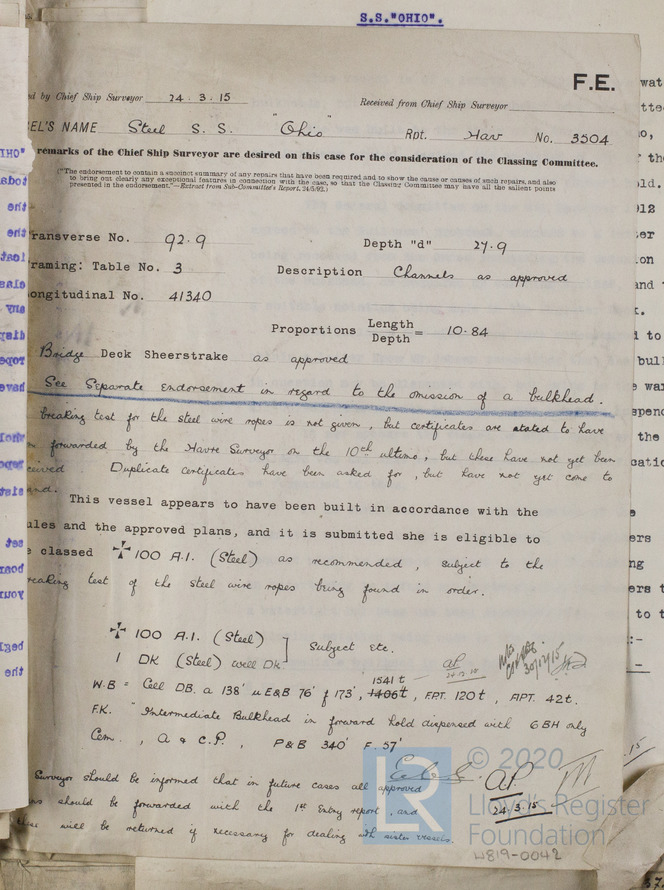 S.S. "OHIO".
F.E.
ed by Chief Ship Surveyor 24.3.15 Received from Chief Ship Surveyor
EL'S NAME Steel S.S. "Ohio" Rpt. Hav No. 3504
remarks of the Chief Ship Surveyor are desired on this case for the consideration of the Classing Committee.
("The endorsement to contain a succinct summary of any repairs that have been required and to show the cause or causes of such repairs, and also
to bring out clearly any exceptional features in connection with the case, so that the Classing Committee may have all the salient points
presented in the endorsement."—Extract from Sub-Committee's Report, 24/5/92.)
ransverse No. 92.9 Depth "d" 27.9
raming: Table No. 3 Description Channels as approved
ongitudinal No. 41340
Proportions Length / Depth = 10.84
Bridge Deck Sheerstrake as approved
See Separate Endorsement in regard to the omission of a bulkhead.
breaking test for the steel wire ropes is not given, but certificates are stated to have
forwarded by the Havre Surveyor on the 10th ultimo, but these have not yet been
ceived Duplicate certificates have been asked for, but have not yet come to
and.
This vessel appears to have been built in accordance with the
ules and the approved plans, and it is submitted she is eligible to
e classed ✠ 100 A.1. (Steel) as recommended, subject to the
reaking test of the steel wire ropes being found in order.
✠ 100 A.1. (Steel) ] Subject Etc.
1 DK (Steel) well DK
W.B = Cell DB. a 138' u E&B 76' f 173', 1541t 1406t, FPT. 120t, APT. 42t.
F.K. Intermediate Bulkhead in forward hold dispensed with 6 BH only
Cem., A & C.P., P&B 340' F. 57'
Surveyor should be informed that in future cases all approved
ns should be forwarded with the 1st Entry report, and
will be returned if necessary for dealing with sister vessels.
24.3.15
© 2020
Lloyd's Register
Foundation
W819-0042